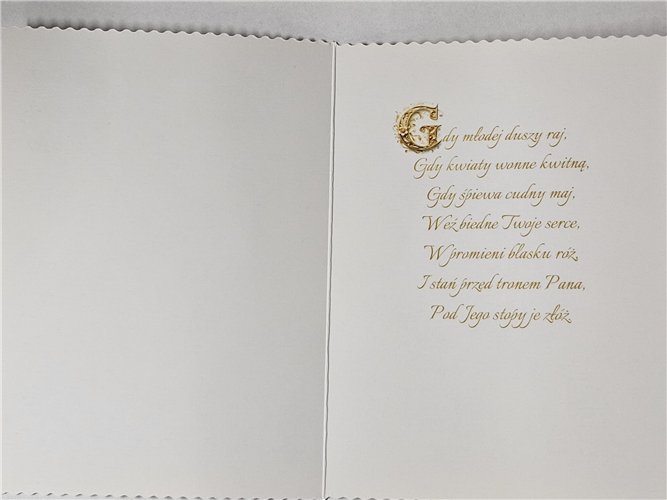 Gdy młodej duszy raj,
Gdy kwiaty wonne kwitną,
Gdy śpiewa cudny maj.
Weź biedne Twoje serce,
W promieni blasku róż,
I stań przed tronem Pana,
Pod Jego stopy je złóż.